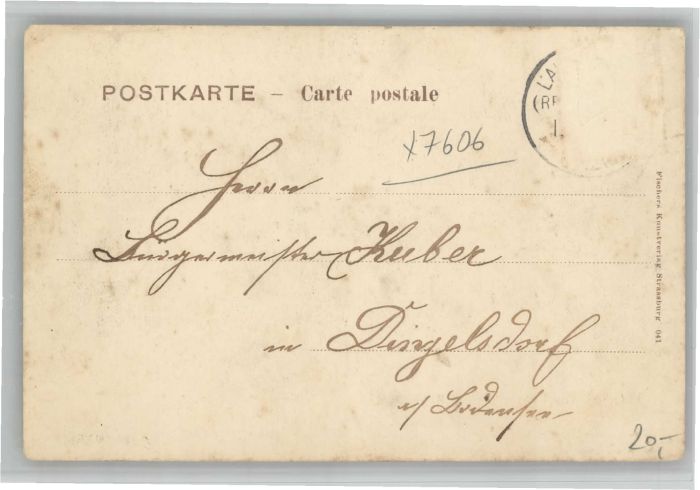 POSTKARTE – Carte postale
x7606
Herrn
Bürgermeister Huber
in Dingelsdorf
a/ Bodensee
20,-
Fischers Kunstverlag Strassburg 041